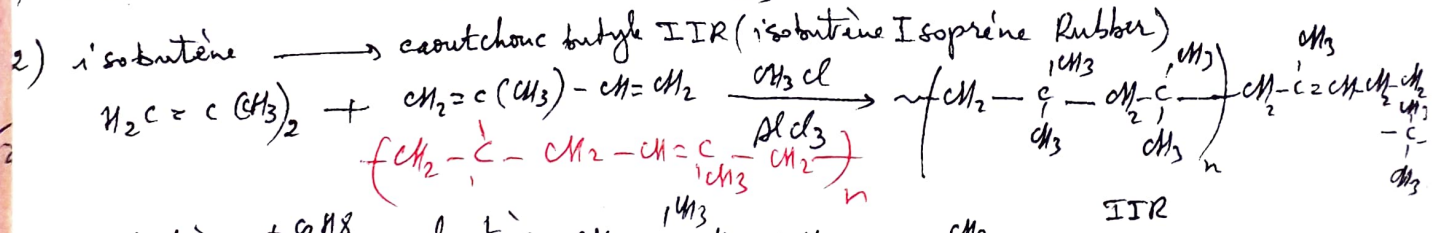 2) isobutène ⟶ caoutchouc butyle IIR (isobutène Isoprène Rubber)
H₂C = C(CH₃)₂ + CH₂ = C(CH₃) - CH = CH₂ ⟶ CH₃Cl AlCl₃ ~(CH₂ - C(CH₃)(CH₃) - CH₂ - C(CH₃)(CH₃))n CH₂ - C(CH₃) = CH CH₂ - CH₂ - C(CH₃)(CH₃) -
(CH₂ - C - CH₂ - CH = C(CH₃) - CH₂)n
IIR
CH₃